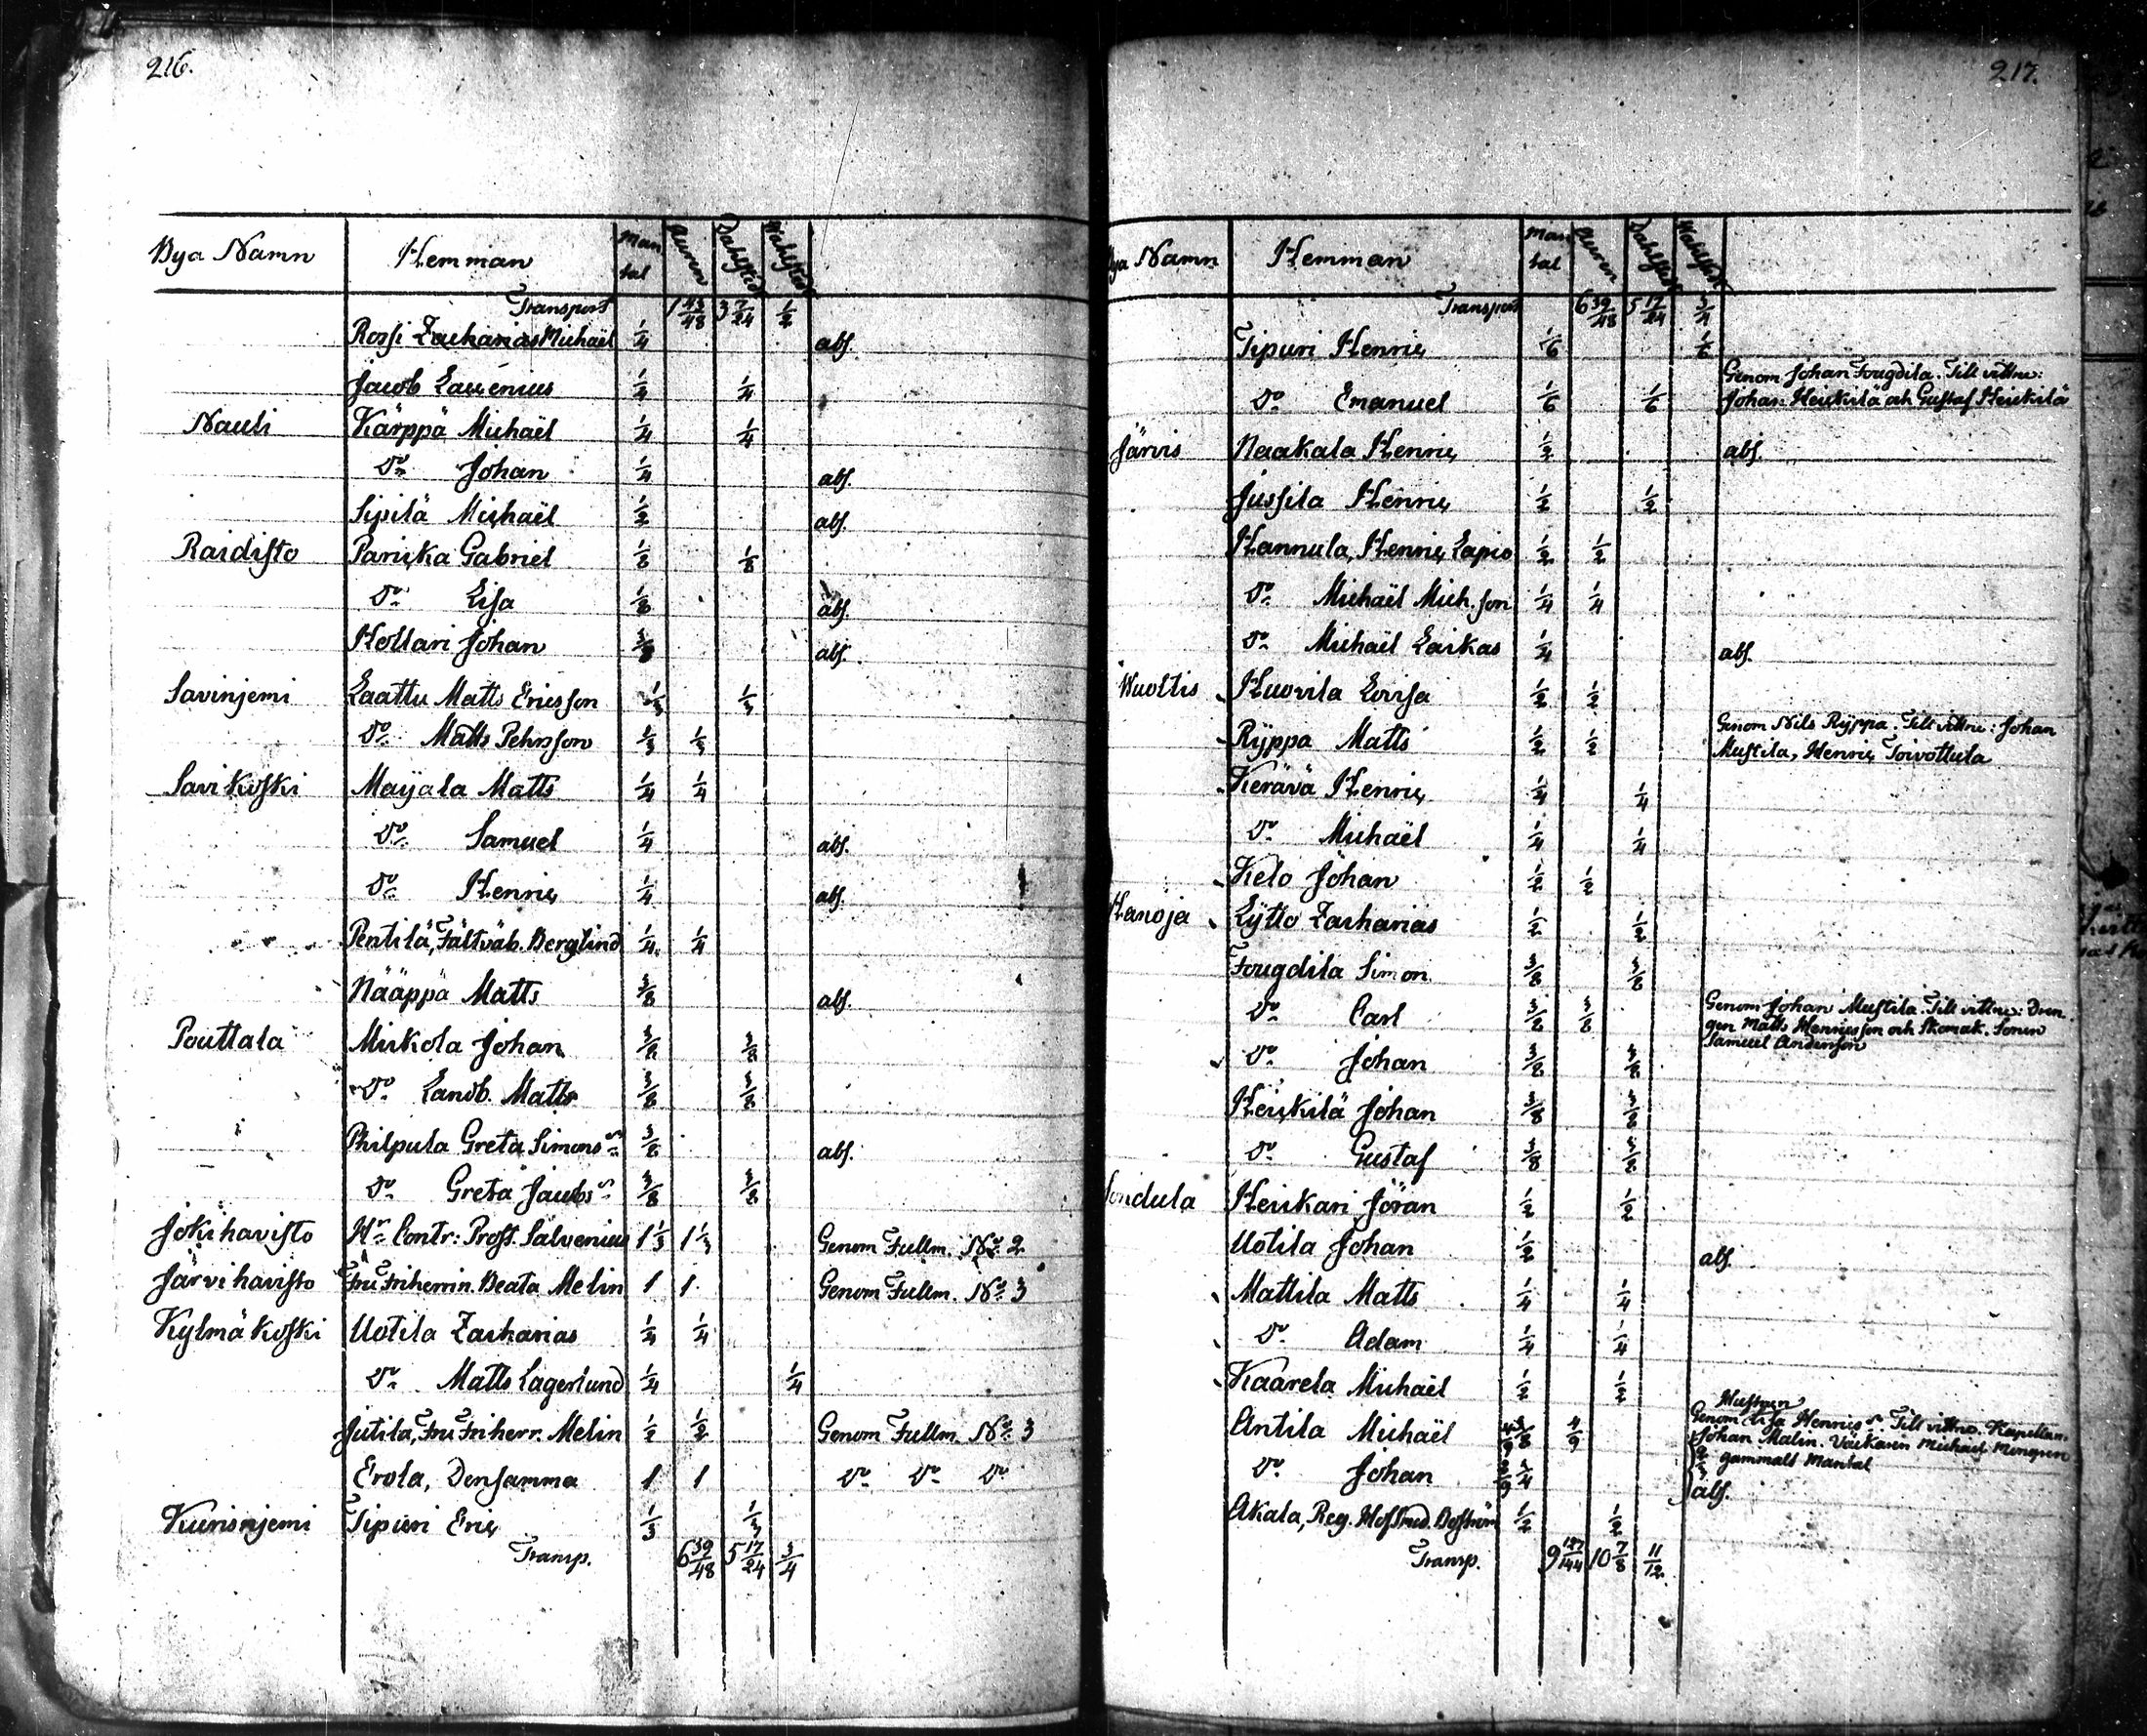 216.
Bya Namn Hemman Man tal Auren Dahlsted Wahlsted
Transport 1 43/48 3 7/24 1/2
Rossi Zacharias Michaël 1/4 abs.
Jacob Laurenius 1/4 1/4
Nauli Kärppä Michaël 1/4 1/4
Do Johan 1/4 abs.
Sipilä Michaël 1/2 abs.
Raidisto Paricka Gabriel 1/8 1/8
Do Lisa 1/8 abs.
Hollari Johan 3/8 abs.
Savinjemi Laattu Matts Ericsson 1/3 1/3
Do Matts Pehrsson 1/3 1/3
Savikoski Mayala Matts 1/4 1/4
Do Samuel 1/4 abs.
Do Henric 1/4 abs.
Pentilä, Fältväb. Berglind 1/4 1/4
Nääppä Matts 3/8 abs.
Pouttala Mickola Johan 3/8 3/8
Do Landb. Matts 3/8 3/8
Philpula Greta Simons dr 3/8 abs.
Do Greta Jacobs dr 3/8 3/8
Jokihavisto Hr Contr: Prost. Salvenius 1 1/3 1 1/3 Genom Fullm. No 2
Järvihavisto Fru Friherrin. Beata Melin 1 1 Genom Fullm. No 3
Kylmäkoski Uotila Zacharias 1/4 1/4
Do Matts Lagerlund 1/4 1/4
Jutila, Fru Friherr. Melin 1/2 1/2 Genom Fullm. No 3
Erola, Densamma 1 1 Do Do Do
Kurisnjemi Tipuri Eric 1/3 1/3
Transp. 6 39/48 5 17/24 3/4
217.
Bya Namn Hemman Man tal Auren Dahlsted Wahlsted
Transport 6 39/48 5 17/24 3/4
Tipuri Henric 1/6 1/6
Genom Johan Fougdila. Till vittne:
Do Emanuel 1/6 1/6 Johan Heickilä och Gustaf Heickilä
Järvis Naakala Henric 1/2 abs.
Jussila Henric 1/2 1/2
Hannula, Henric Lapio 1/2 1/2
Do Michaël Mich.son 1/4 1/4
Do Michaël Laikas 1/4 abs.
Wuoltis Huovila Lovisa 1/2 1/2
Genom Nils Ryppa. Till vittne: Johan
Ryppa Matts 1/2 1/2 Mustila, Henric Toivottula
Kerävä Henric 1/4 1/4
Do Michaël 1/4 1/4
Kelo Johan 1/2 1/2
Hanoja Lytto Zacharias 1/2 1/2
Fougdila Simon 3/8 3/8
Do Carl 3/8 3/8 Genom Johan Mustila. Till vittne: Dren-
gen Matts Henricsson och Skomak. Sonen
Samuel Andersson
Do Johan 3/8 3/8
Heickilä Johan 3/8 3/8
Do Gustaf 3/8 3/8
Sondula Heickari Jöran 1/2 1/2
Uotila Johan 1/2 abs.
Mattila Matts 1/4 1/4
Do Adam 1/4 1/4
Kaarela Michaël 1/2 1/2
Hustrun
Genom Lisa Henrics dr. Till vittne. Kapellan.
Antila Michaël 4/9 3/8 4/9 Johan Malin.
gammalt Mantal
Do Johan 2/9 abs.
Akala, Reg. 1/2 1/2
Transp. 9 137/144 10 7/8 11/12